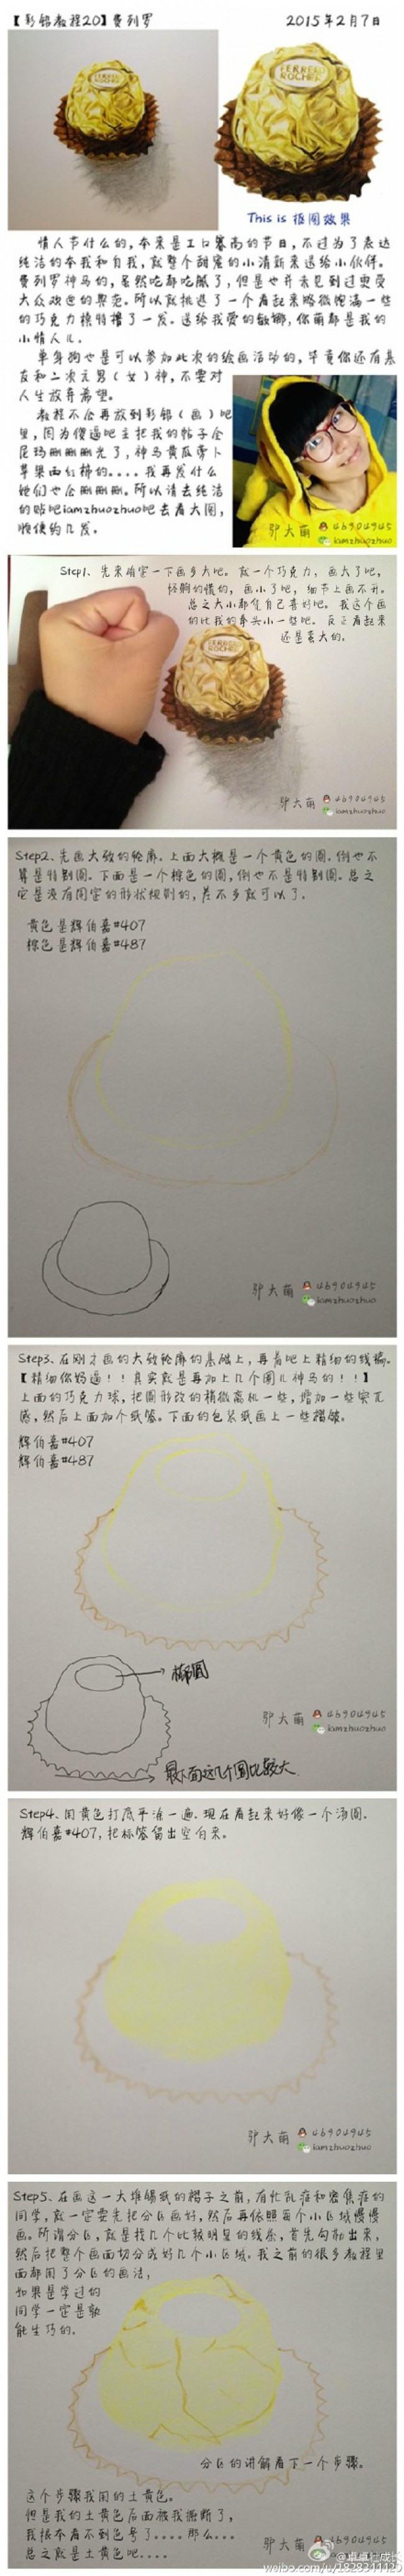 【彩铅教程20】费列罗
2015年2月7日
FERRERO
ROCHER
This is 抠图效果
情人节什么的，本来是工口寨高的节日，不过为了表达
纯洁的本我和自我，就整个甜蜜的小清新来送给小伙伴。
费列罗神马的，虽然吃都吃腻了，但是也并未见到过更受
大众欢迎的典范。所以就挑选了一个看起来略微饱满一些
的巧克力模特撸了一发。送给我爱的敏娜，你萌都是我的
小情人儿。
单身狗也是可以参加此次的绘画活动的，毕竟你还有基
友和二次元男（女）神，不要对
人生放弃希望。
教程不会再放到彩铅（画）吧
里，因为傻逼吧主把我的帖子全
尼玛删删删光了，神马黄瓜萝卜
苹果西红柿的....我再发什么
她们也会删删删。所以请去纯洁
的贴吧iamzhuozhuo吧去看大图，
顺便约几发。
驴大萌 46904945
iamzhuozhuo
Step1、先来确定一下画多大吧。就一个巧克力，画大了吧，
怪齁的慌的，画小了吧，细节上画不开。
总之大小都凭自己喜好吧。我这个画
的比我的拳头小一些吧。反正看起来
还是蛮大的。
FERRERO
ROCHER
驴大萌 46904945
iamzhuozhuo
Step2、先画大致的轮廓。上面大概是一个黄色的圆，倒也不
算是特别圆。下面是一个棕色的圆，倒也不是特别圆。总之
它是没有固定的形状规则的，差不多就可以了。
黄色是辉伯嘉#407
棕色是辉伯嘉#487
驴大萌 46904945
iamzhuozhuo
Step3、在刚才画的大致轮廓的基础上，再着吧上精细的线稿。
【精细你妈逼！！其实就是再加上几个圈儿神马的！！】
上面的巧克力球，把圆形改的稍微离机一些，增加一些突兀
感，然后上面加个纸签。下面的包装纸画上一些褶皱。
辉伯嘉#407
辉伯嘉#487
椭圆
最下面这几个圆比较大
驴大萌 46904945
iamzhuozhuo
Step4、用黄色打底平涂一遍。现在看起来好像一个汤圆。
辉伯嘉#407，把标签留出空白来。
驴大萌 46904945
iamzhuozhuo
Step5、在画这一大堆锡纸的褶子之前，有忙乱症和密焦症的
同学，就一定要先把分区画好，然后再依照每个小区域慢慢
画。所谓分区，就是找几个比较明显的线条，首先勾勒出来，
然后把整个画面切分成好几个小区域。我之前的很多教程里
面都用了分区的画法，
如果是学过的
同学一定是熟
能生巧的。
分区的讲解看下一个步骤。
这个步骤我用的土黄色。
但是我的土黄色后面被我撅断了，
我根本看不到色号了....那么...
总之就是土黄色吧....
驴大萌
iamzhuozhuo